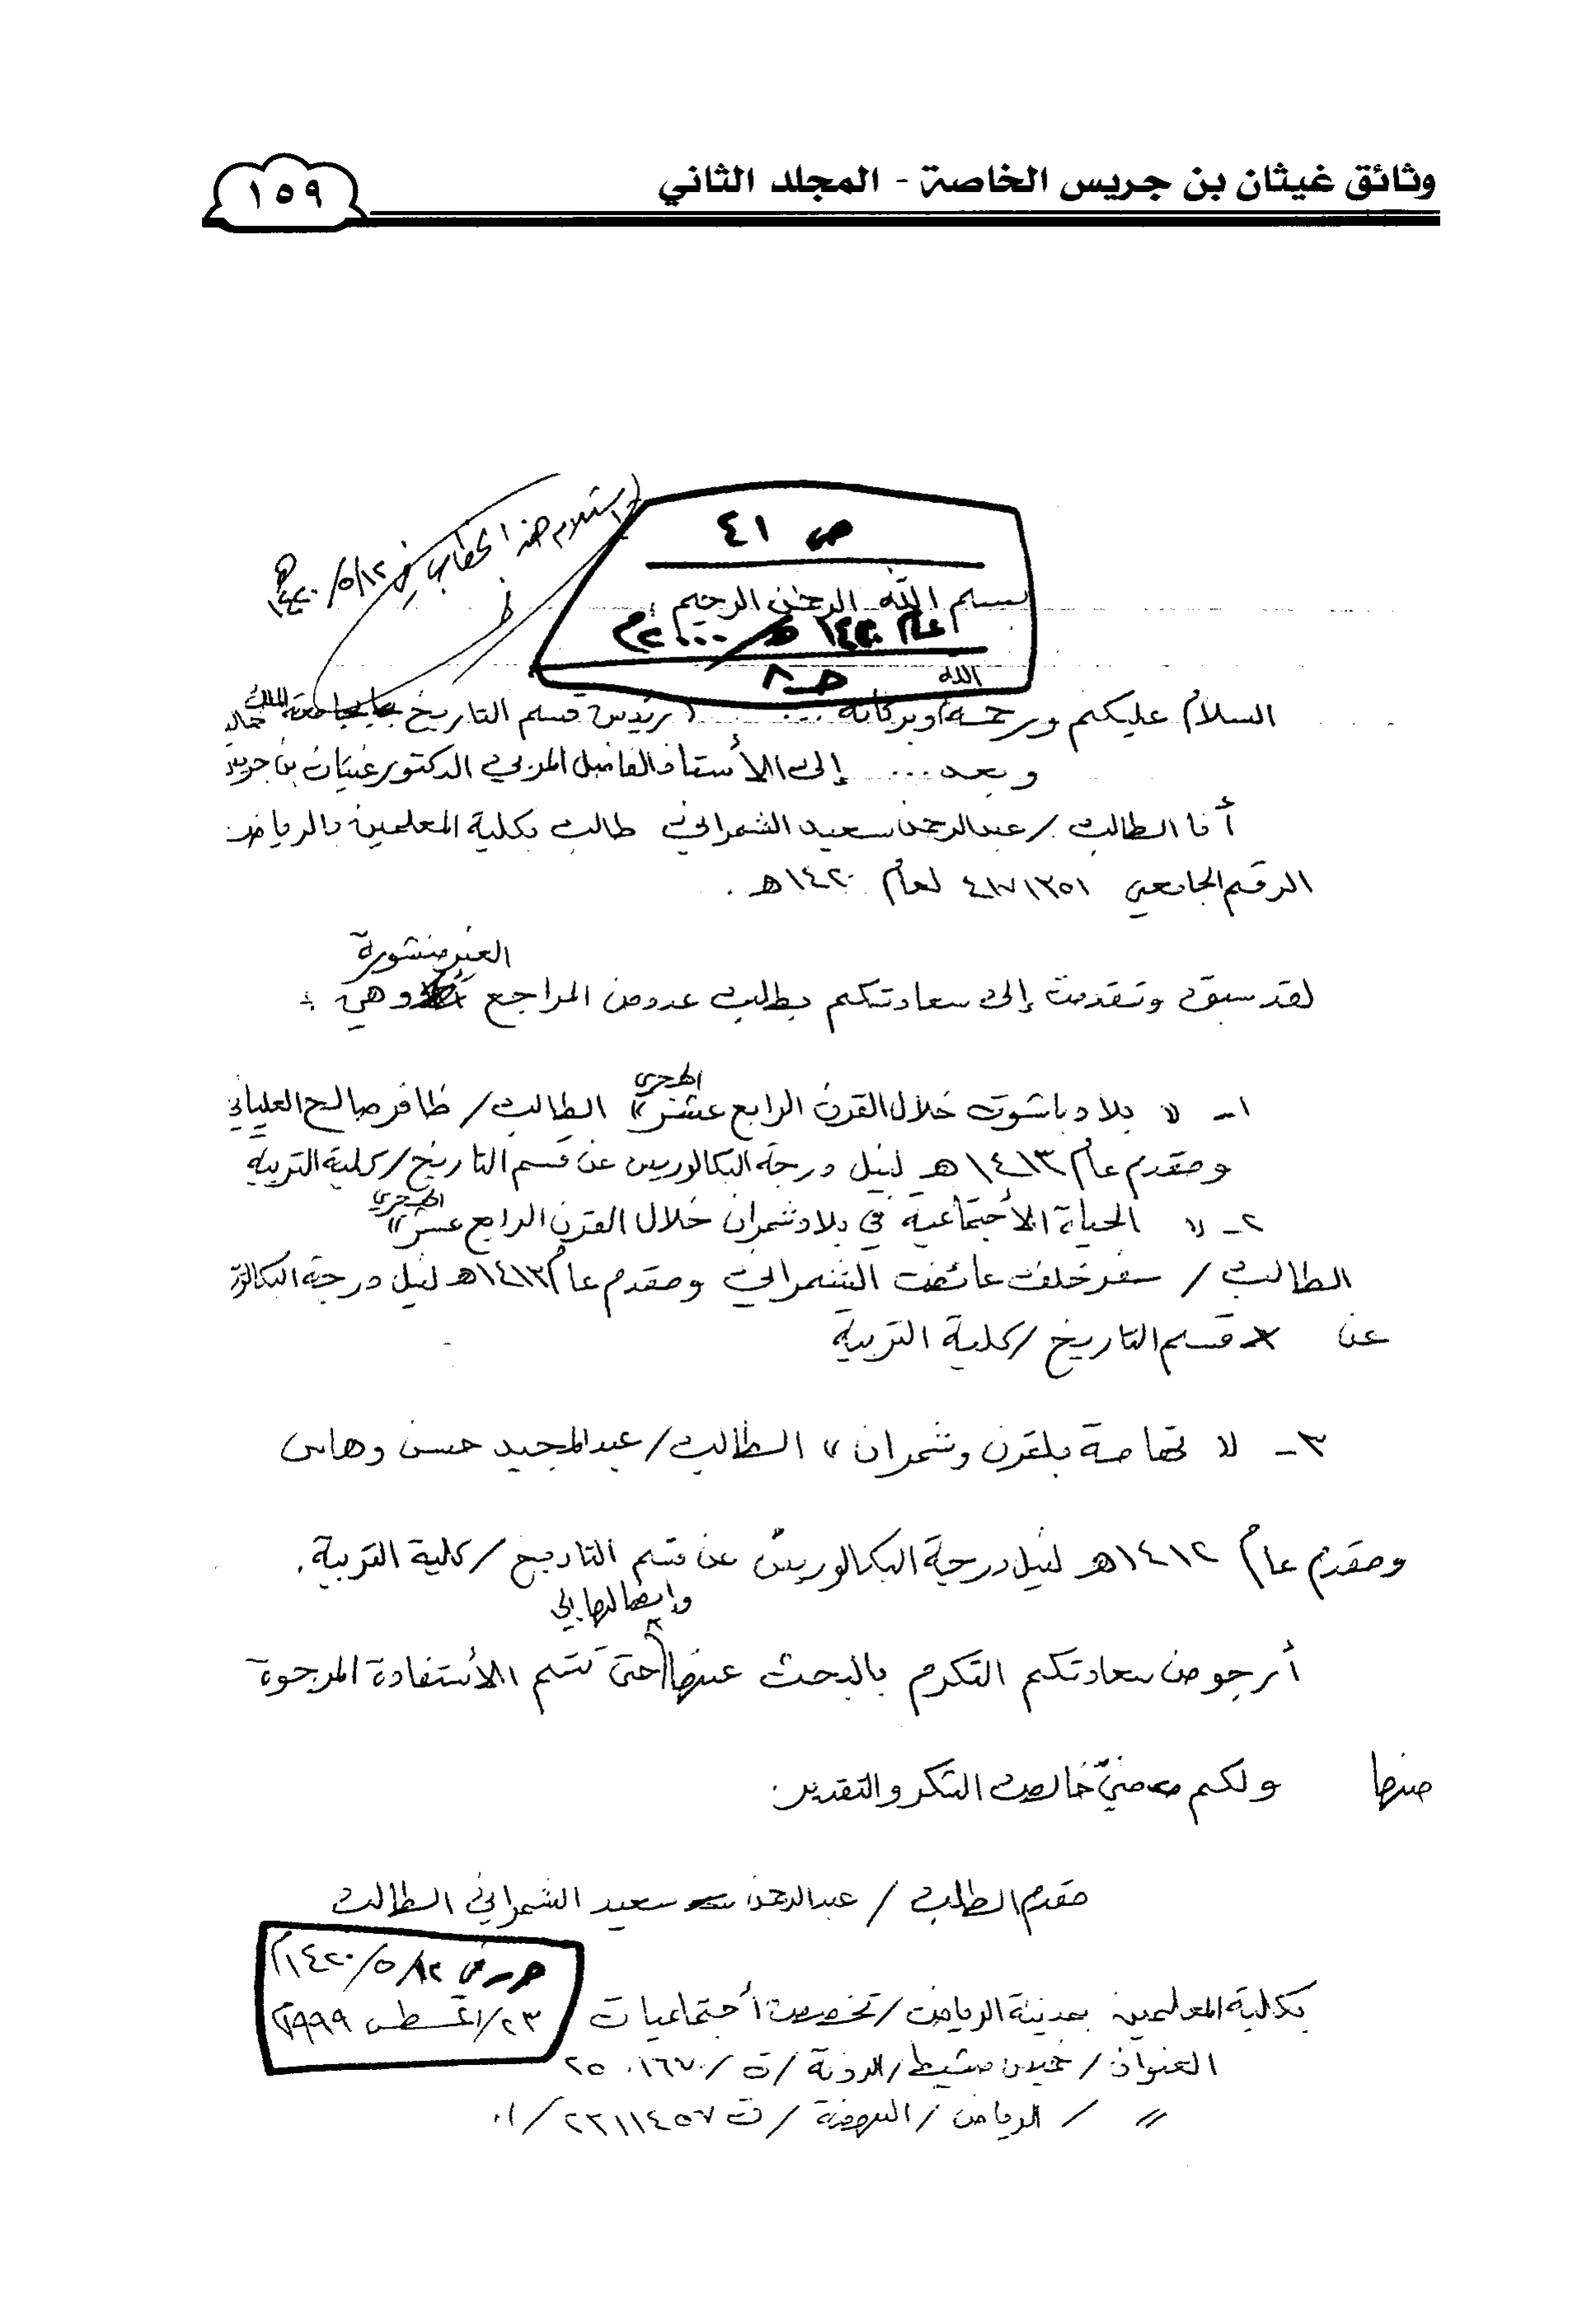 وثائق غيثان بن جريس الخاصة - المجلد الثاني
١٥٩
استلام هذا الخطاب في ١٤٢٠/٥/١٢هـ
ص ٤١
بسم الله الرحمن الرحيم ؛
عام ١٤٢٠هـ/٢٠٠٠م
حـ ٨
السلام عليكم ورحمة الله وبركاته ... (رئيس قسم التاريخ بجامعة الملك خالد
وبعد ... إلى الأستاذ الفاضل المربي الدكتور غيثان بن جريس
أنا الطالب / عبدالرحمن سعيد الشمراني طالب بكلية المعلمين بالرياض
الرقم الجامعي ٤١٧١٢٥١ لعام ١٤٢٠هـ .
لقد سبق وتقدمت إلى سعادتكم بطلب عدد من المراجع الغير منشورة وهي :
١- « بلاد باشوت خلال القرن الرابع عشر الهجري » الطالب / ظافر صالح العلياني
ومقدم عام ١٤١٣هـ لنيل درجة البكالوريس عن قسم التاريخ / كلية التربية
٢- « الحياة الأجتماعية في بلاد شمران خلال القرن الرابع عشر الهجري »
الطالب / سفر خلف عائض الشمراني ومقدم عام ١٤١٣هـ لنيل درجة البكالور
عن قسم التاريخ / كلية التربية
٣- « تهامة بلقرن وشمران » الطالب / عبدالمجيد حسن وهاس
ومقدم عام ١٤١٢هـ لنيل درجة البكالوريس عن قسم التاريخ / كلية التربية .
أرجو من سعادتكم التكرم بالبحث عنها وإيصالها إلي حتى تتم الأستفادة المرجوة
منها ولكم مني خالص الشكر والتقدير .
مقدم الطلب / عبدالرحمن سعيد الشمراني الطالب
بكلية المعلمين بمدينة الرياض / تخصص أجتماعيات
حرر في ١٤٢٠/٥/١٢
٢٣/أغسطس ١٩٩٩م
العنوان / خميس مشيط / الدونة / ت / ٢٥٠١٦٧٠
〃 / الرياض / النهضة / ت ٢٣١١٤٥٧ / ٠١